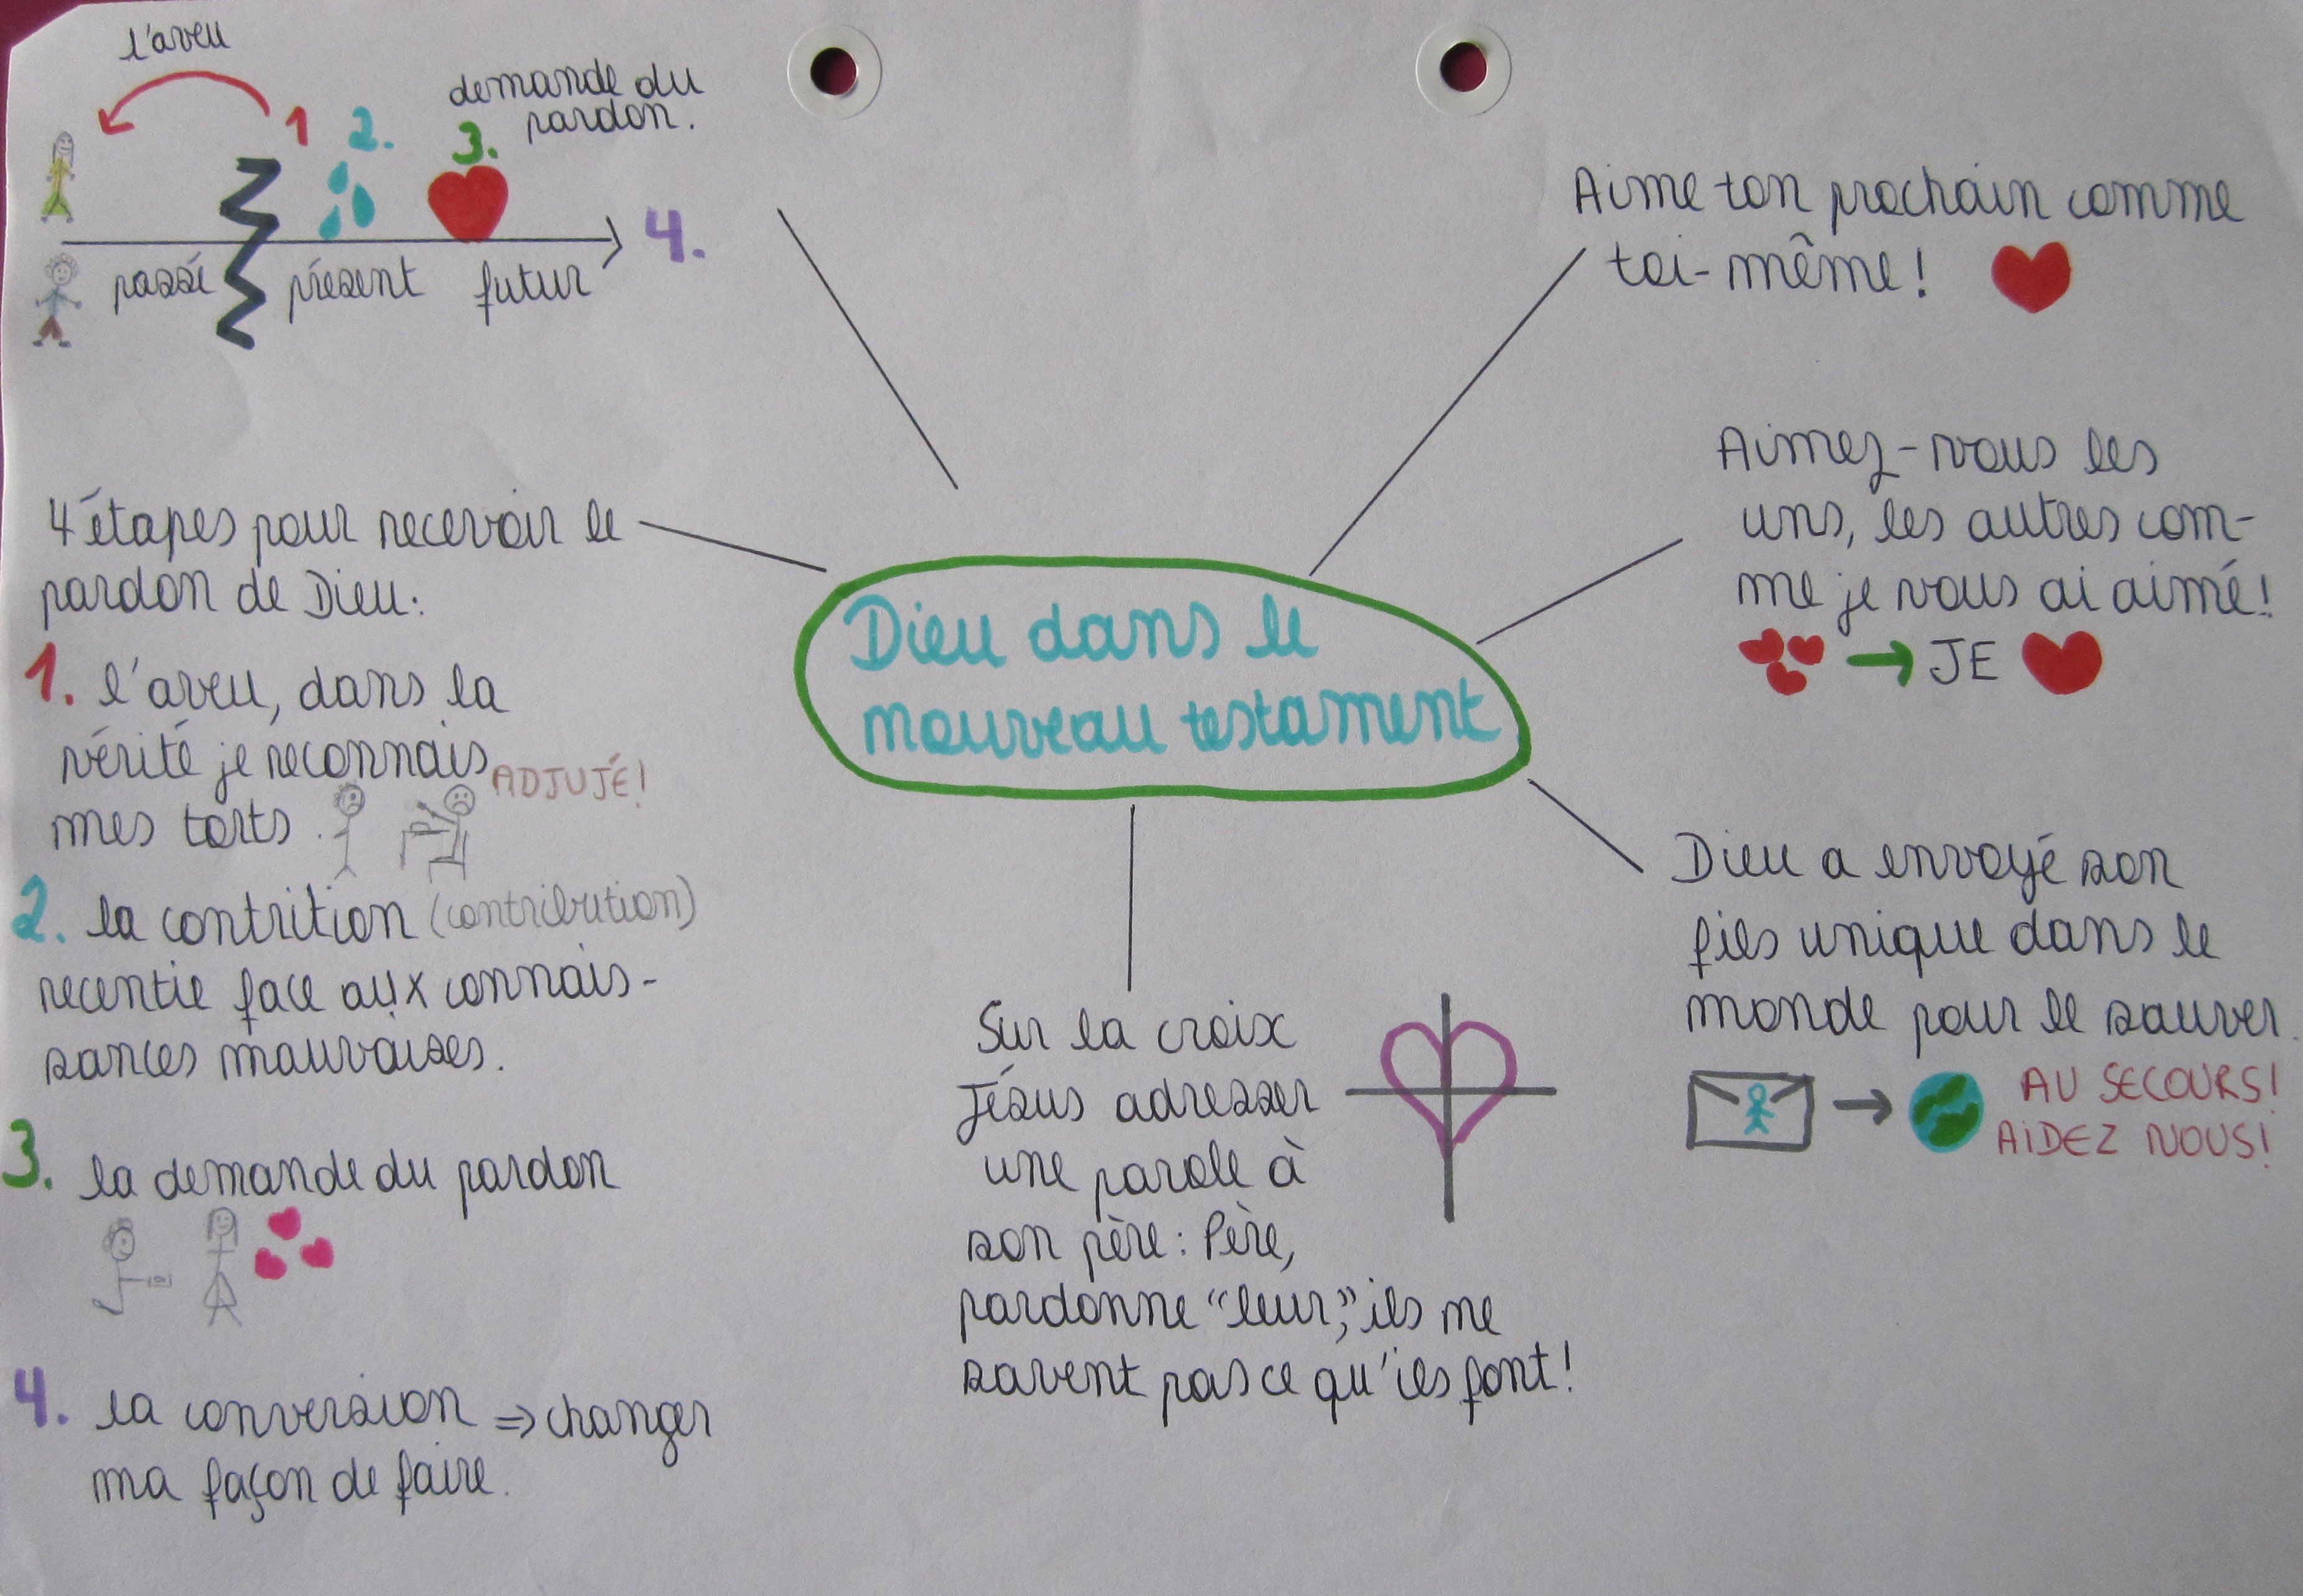 l'aveu
1 2. 3.
demande du
pardon.
4.
passé présent futur
4 étapes pour recevoir le
pardon de Dieu:
1. l'aveu, dans la
vérité je reconnais
mes torts.
ADJUJÉ!
2. la contrition (contribution)
recentie face aux connais-
sances mauvaises.
3. la demande du pardon
4. la conversion => changer
ma façon de faire.
Dieu dans le
nouveau testament
Aime ton prochain comme
toi-même!
Aimez-vous les
uns, les autres com-
me je vous ai aimé!
→ JE
Dieu a envoyé son
fils unique dans le
monde pour le sauver.
AU SECOURS!
AIDEZ NOUS!
Sur la croix
Jésus adresser
une parole à
son père: Père,
pardonne "leur", ils ne
savent pas ce qu'ils font!